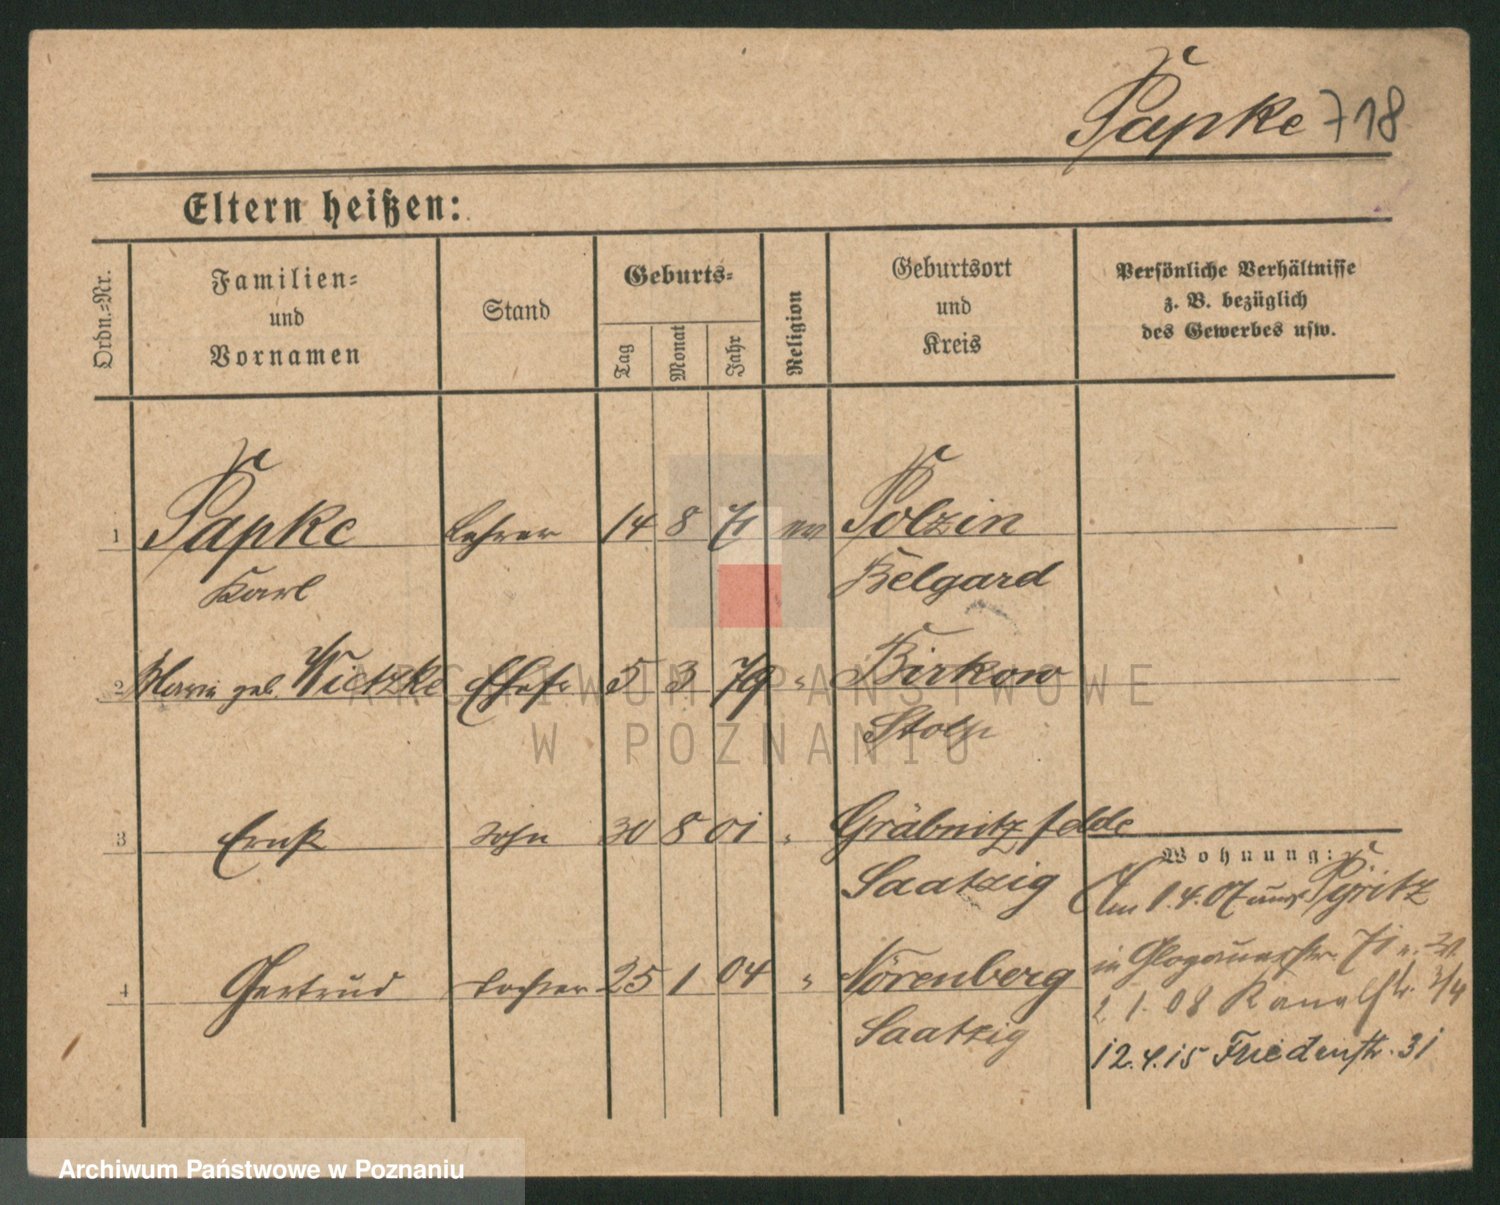 Papke 718
Eltern heißen:
Ordn.=Nr.
Familien=
und
Vornamen
Stand
Geburts=
Tag
Monat
Jahr
Religion
Geburtsort
und
Kreis
Persönliche Verhältnisse
z. B. bezüglich
des Gewerbes usw.
1 Papke Lehrer 14 8 71 ev Polzin
Karl Belgard
2 Maria geb. Wietzke Ehefr 5 3 79 " Birkow
Stolp
3 Ernst Sohn 30 8 01 " Gräbnitzfelde
Saatzig
Wohnung:
Am 1.4.07 aus Pyritz
4 Gertrud Tochter 25 1 04 " Nörenberg
Saatzig
in Glogauerstr. 71
2 1. 08 Kanalstr. 3/4
12.4.15 Friedenstr. 31
ARCHIWUM PAŃSTWOWE
W POZNANIU
Archiwum Państwowe w Poznaniu